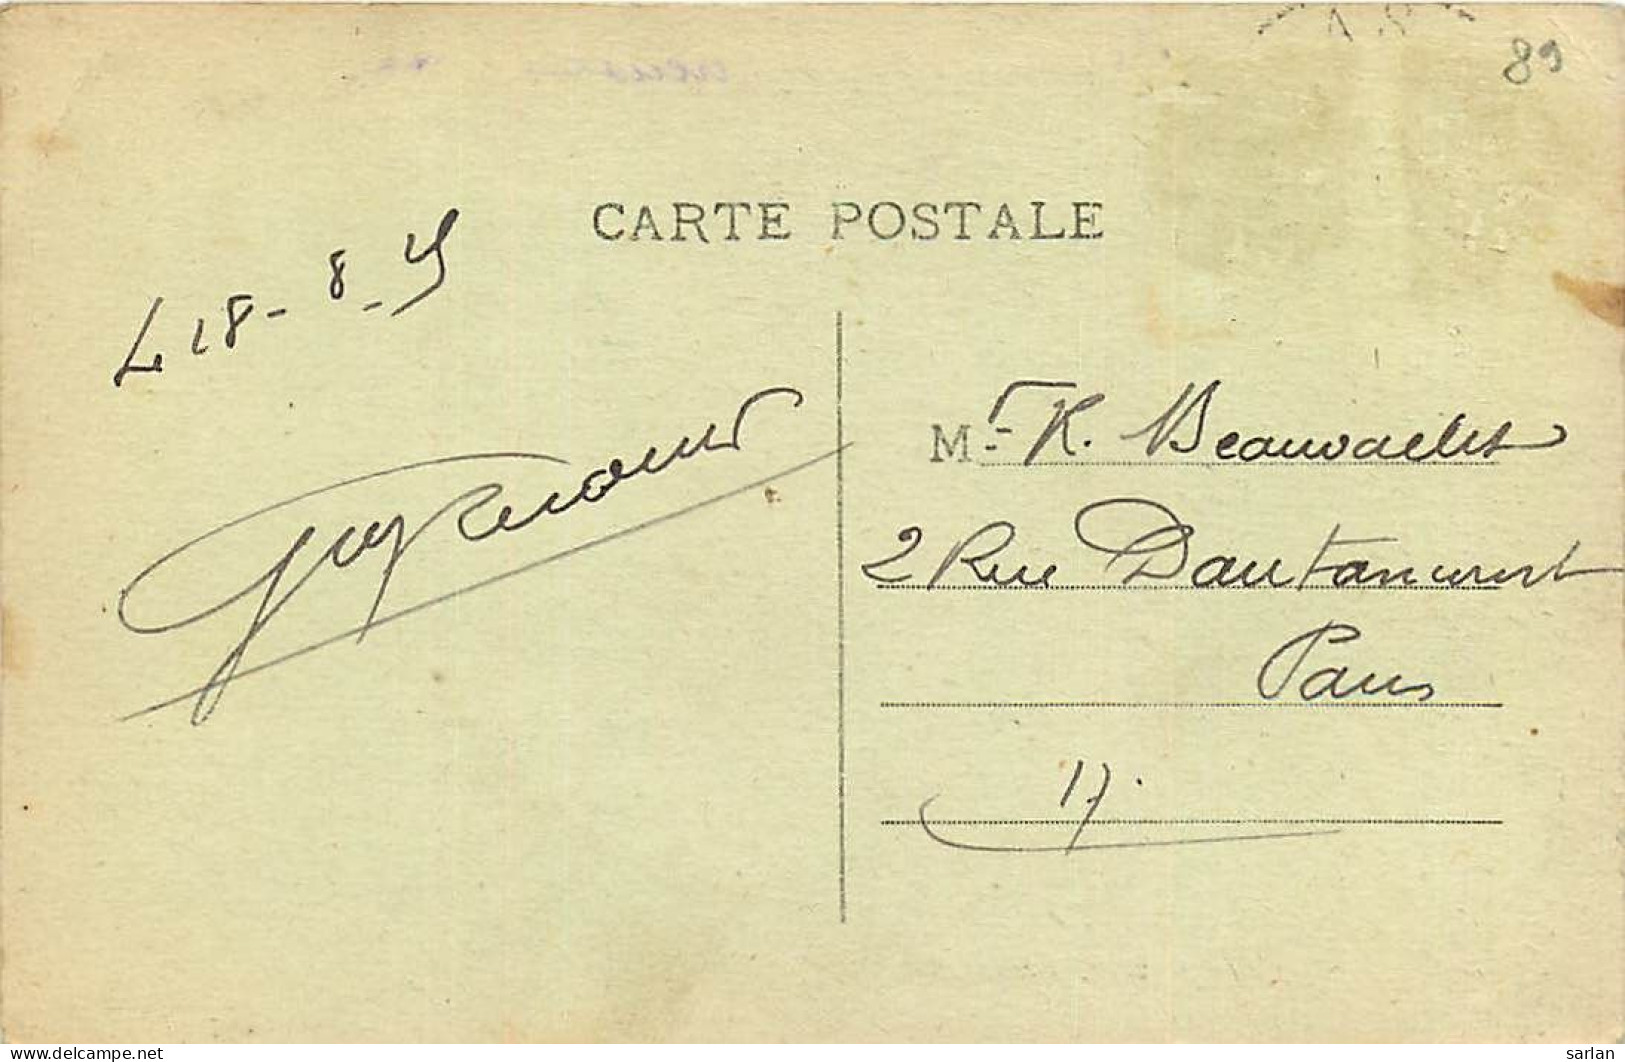 89
CARTE POSTALE
Le 18-8-
Mr K. Beauvaelet
2 Rue Dautancourt
Paris
17.
delcampe.net
sarlan